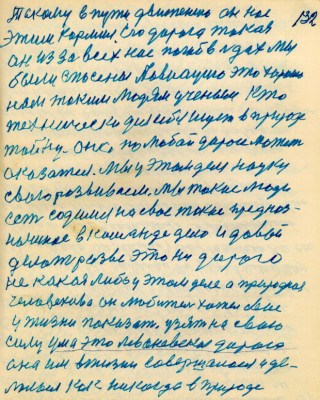 132
Такому в пути движению он нас
этим кормил его дорога такая
он из за всех нас погиб в удах мы
были спасены Навигацию это хорошо
нам таким людям ученым кто
технически для себя ищет в природе
тайну. Она по любой дороге может
оказаться. Мы у этом деле науку
свою развиваем. Мы такие люди
есть содимся на свое такое предназ-
начение в команде дело и давай
делать разве это ни дорого
не какая либо у этом деле а природная
человечива он любител хател свое
у жизни показать узят на свою
силу ума это Московская дорога
она им в жизни совершалася и де-
лалася как никогда в природе